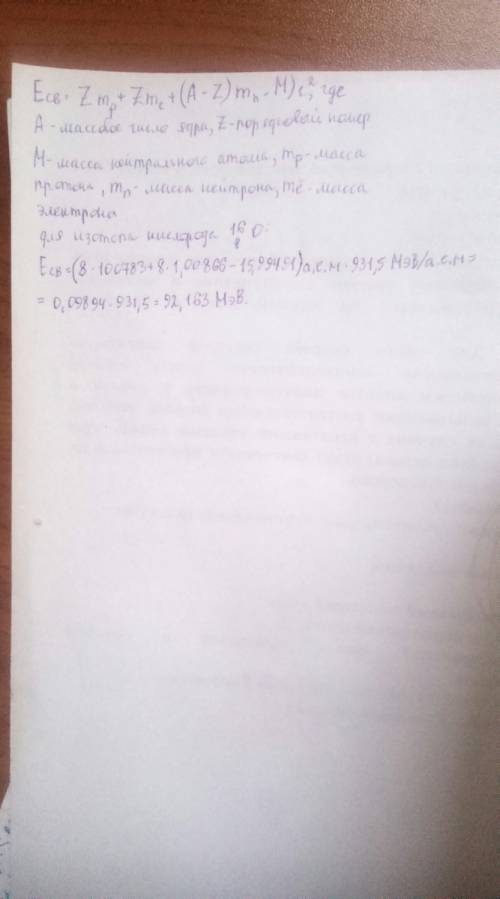 Eсв. Z mp + Z me + (A - Z) mn - M) c², где
A - массовое число ядра, Z - порядковый номер
M - масса нейтрального атома, mp - масса
протона, mn - масса нейтрона, me - масса
электрона
для изотопа кислорода ¹⁶₈O:
Eсв = (8 · 100783 + 8 · 1,00866 - 15,99491) а.е.м · 931,5 МэВ/а.е.м =
= 0,09894 · 931,5 = 92,163 МэВ.